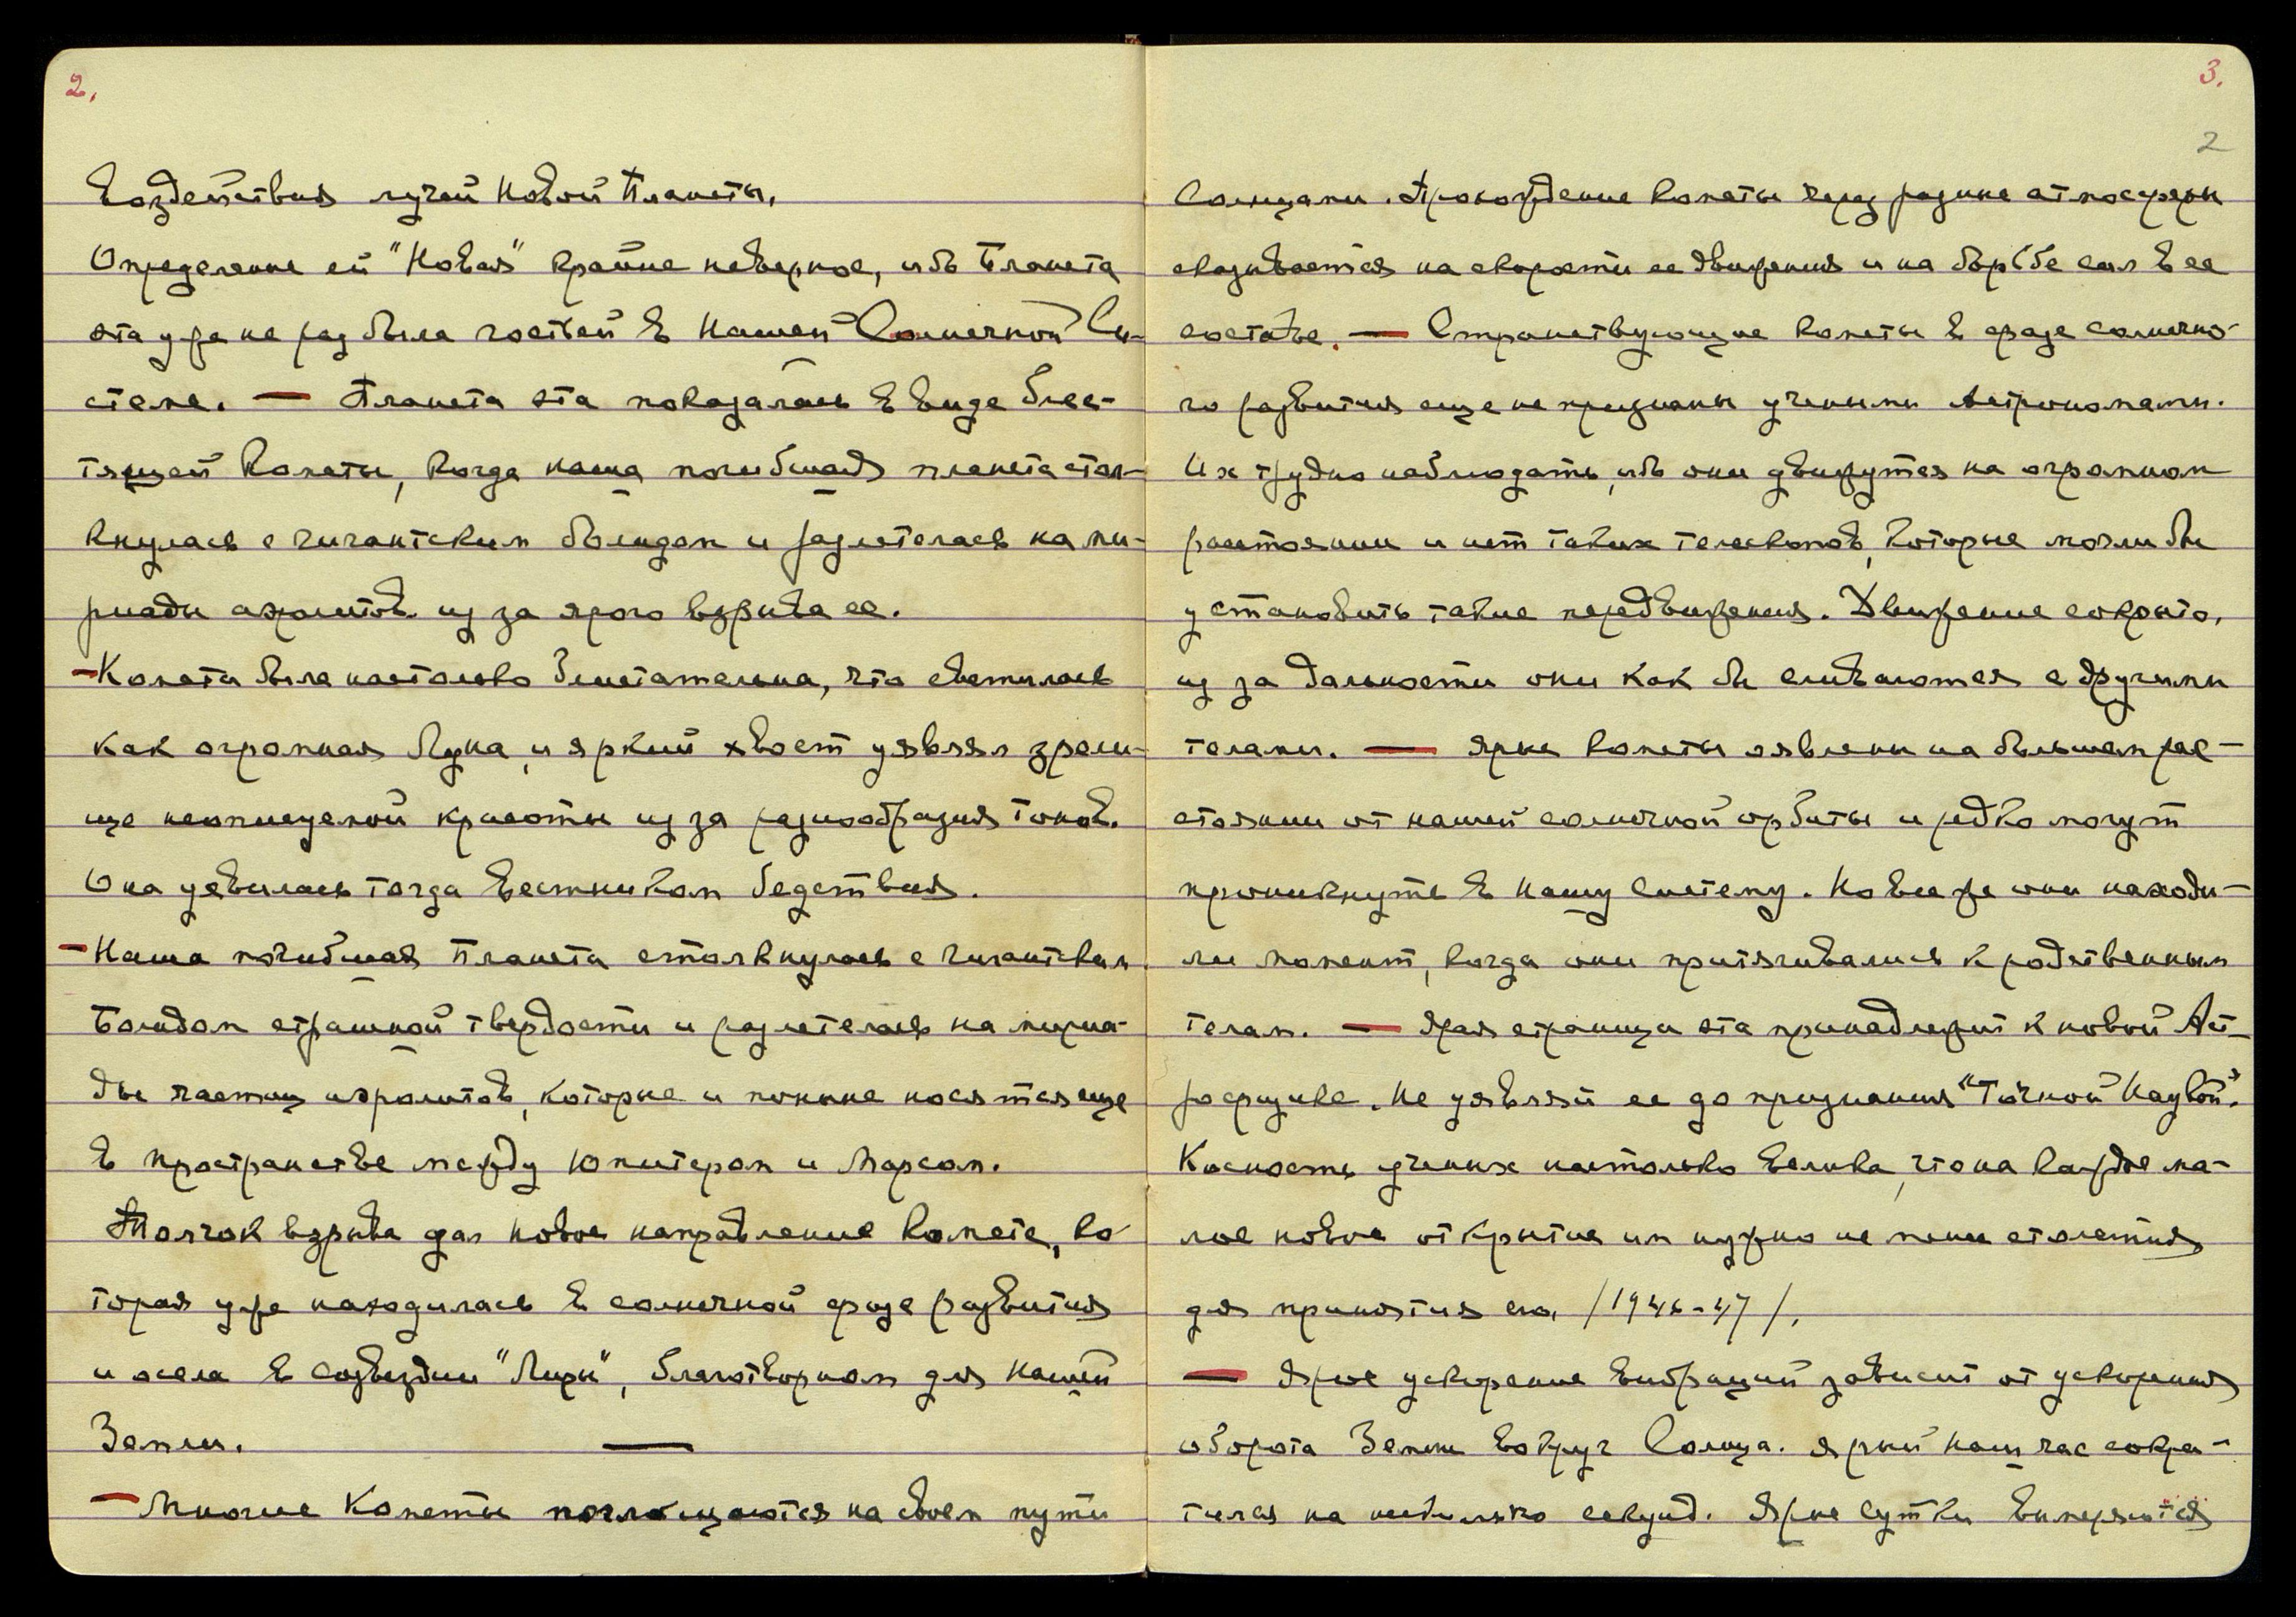 2.
воздействия лучей Новой Планеты.
Определение ей "Новая" крайне неверное, ибо Планета
эта уже не раз была гостьей в Нашей Солнечной Си-
стеме. — Планета эта показалась в виде блес-
тящей Кометы, когда наша погибшая планета стол-
кнулась с гигантским болидом и разлетелась на ми-
риады аэролитов из за ярого взрыва ее.
— Комета была настолько блистательна, что светилась
как огромная Луна, и яркий хвост уявлял зрели-
ще неописуемой красоты из за разнообразия токов.
Она уявилась тогда вестником бедствия.
— Наша погибшая Планета столкнулась с гигантским
Болидом страшной твердости и разлетелась на мириа-
ды частиц аэролитов, которые и поныне носятся еще
в пространстве между Юпитером и Марсом.
Толчок взрыва дал новое направление Комете, ко
торая уже находилась в солнечной фазе развития
и осела в созвездии "Лиры", благотворном для нашей
Земли. —
— Многие Кометы поглощаются на своем пути
3.
2
Солнцами. Прохождение кометы через разные атмосферы
сказывается на скорости ее движения и на борьбе сил в ее
составе. — Странствующие кометы в фазе солнечно-
го развития еще не признаны учеными Астрономами.
Их трудно наблюдать, ибо они движутся на огромном
расстоянии и нет таких телескопов, которые могли бы
установить такие передвижения. Движение сокрыто,
из за дальности они как бы сливаются с другими
телами. — Ярые кометы явлены на большом рас-
стоянии от нашей солнечной орбиты и редко могут
проникнуть в Нашу систему. Но все же они находи-
ли момент, когда они притягивались к родственным
телам. — Ярая страница эта принадлежит к новой Аст-
рофизике. Не уявляй ее до признания "Точной Наукой".
Косность ученых настолько велика, что на каждое ма-
лое новое открытие им нужно не мене столетия
для принятия его. /1946-47/.
— Ярое ускорение вибраций зависит от ускорения
оборота Земли вокруг Солнца. Ярый наш час сокра-
тился на несколько секунд. Ярые сутки вымеряются